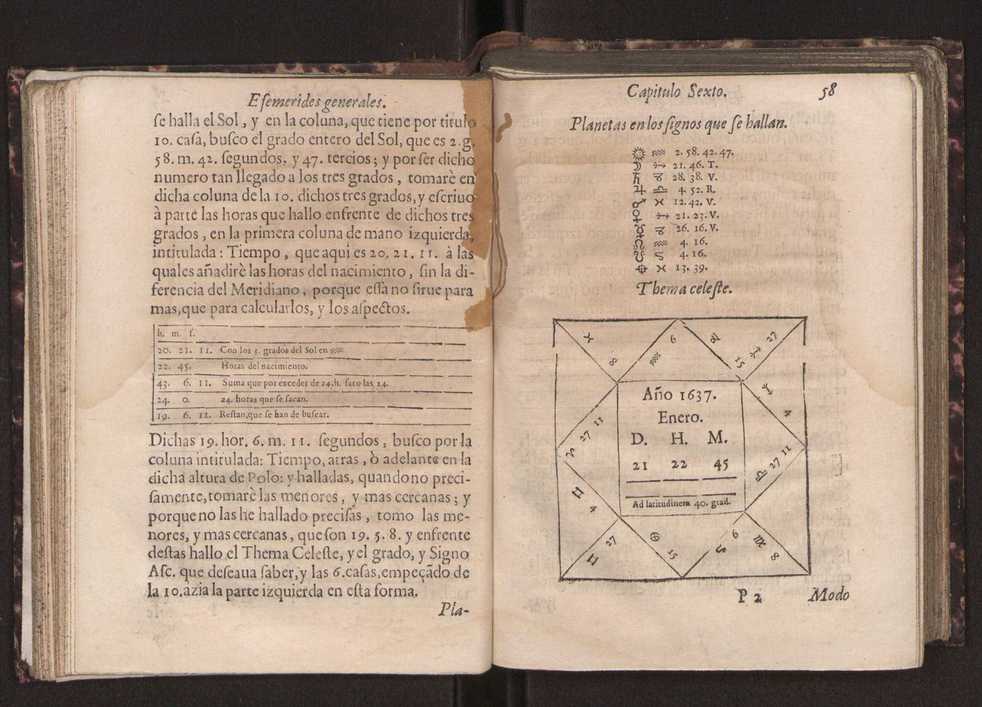 Efemerides generales.
ſe halla el Sol, y en la coluna, que tiene por titulo
10. caſa, buſco el grado entero del Sol, que es 2. g.
58. m. 42. ſegundos, y 47. tercios; y por ſer dicho
numero tan llegado a los tres grados, tomarè en
dicha coluna de la 10. dichos tres grados, y eſcriuo
à parte las horas que hallo enfrente de dichos tres
grados, en la primera coluna de mano izquierda,
intitulada: Tiempo, que aqui es 20. 21. 11. à las
quales añadirè las horas del nacimiento, ſin la di-
ferencia del Meridiano, porque eſſà no ſirue para
mas, que para calcularlos, y los aſpectos.
h. m. ſ.
20. 21. 11. Con los 3. grados del Sol en ♒
22. 45. Horas del nacimiento.
43. 6. 11. Suma que por exceder de 24. h. ſaco las 24.
24. 0. 24. horas que ſe ſacan.
19. 6. 11. Reſtan, que se han de buſcar.
Dichas 19. hor. 6. m. 11. ſegundos, buſco por la
coluna intitulada: Tiempo, atras, ò adelante en la
dicha altura de Polo: y halladas, quando no preci-
ſamente, tomarè las menores, y mas cercanas; y
porque no las he hallado preciſas, tomo las me-
nores, y mas cercanas, que ſon 19. 5. 8. y enfrente
deſtas hallo el Thema Celeſte, y el grado, y Signo
Aſc. que deſeaua ſaber, y las 6. caſas, empeçãdo de
la 10. azia la parte izquierda en eſta forma.
Pla-
Capitulo Sexto. 58
Planetas en los ſignos que ſe hallan.
☉ ♒ 2. 58. 42. 47.
☽ ♐ 21. 46. T.
♄ ♑ 28. 38. V.
♃ ♎ 4. 52. R.
♂ ♓ 12. 42. V.
♀ ♐ 21. 23. V.
☿ ♑ 26. 16. V.
☊ ♒ 4. 16.
☋ ♌ 4. 16.
⊕ ♓ 13. 39.
Thema celeſte.
♓ 8
♒ 6
♑ 15
♐ 27
♐ 4
♎ 27 11
♈ 27 11
Año 1637.
Enero.
D. H. M.
21 22 45
Ad latitudinem 40. grad.
♊ 4
♊ 27
♋ 15
♌ 6
♍ 8
P 2
Modo